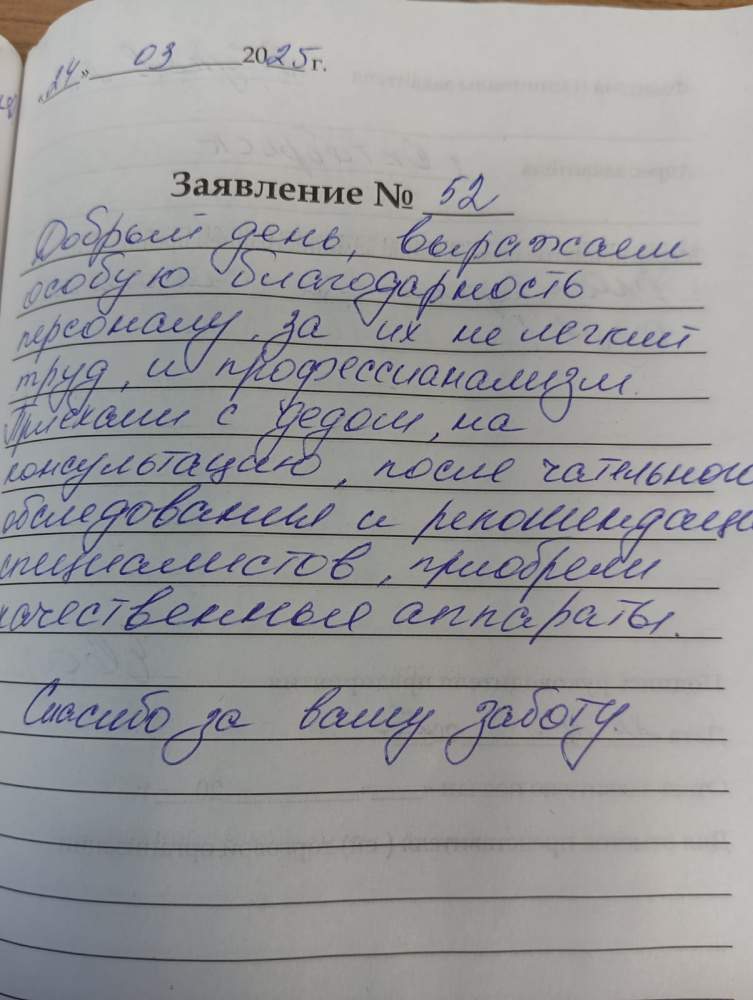 «24» 03 2025 г.
Заявление № 52
Добрый день, выражаем
особую благодарность
персоналу, за их нелегкий
труд, и профессианализм.
Приехали с дедом, на
консультацию, после чательного
обследования и рекомендаций
специалистов, приобрели
качественные аппараты.
Спасибо за вашу заботу.